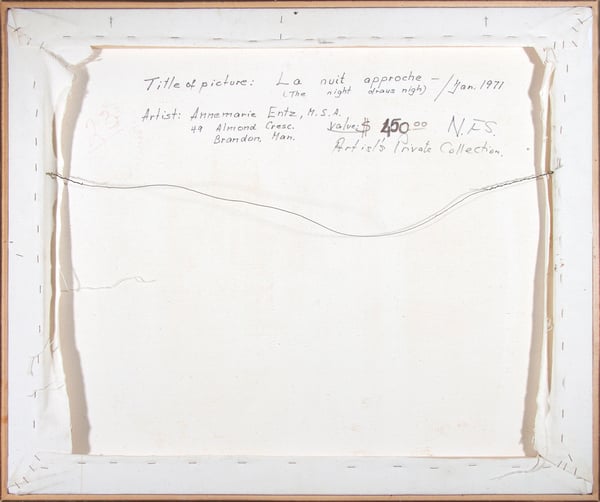 Title of picture: La nuit approche — / Jan. 1971
(The night draws nigh)
Artist: Annemarie Entz, M.S.A.
49 Almond Cresc. value $ 450.00 N.F.S.
Brandon, Man. Artist's Private Collection.